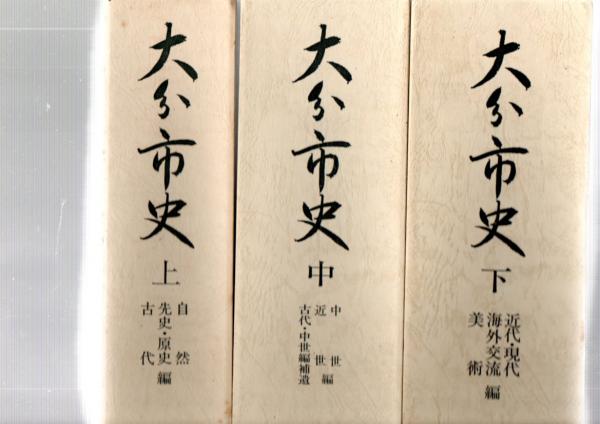 大分市史
上
自然
先史・原史編
古代
大分市史
中
中世
近世編
古代・中世編補遺
大分市史
下
近代・現代
海外交流編
美術